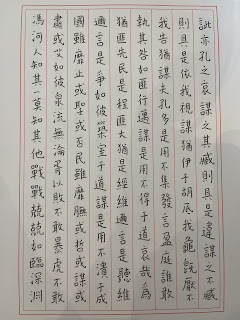 訿亦孔之哀謀之其臧則具是違謀之不臧
則具是依我視謀猶伊于胡厎我龜既厭不
我告猶謀夫孔多是用不集發言盈庭誰敢
執其咎如匪行邁謀是用不得于道哀哉為
猶匪先民是程匪大猶是經維邇言是聽維
邇言是爭如彼築室于道謀是用不潰于成
國雖靡止或聖或否民雖靡膴或哲或謀或
肅或艾如彼泉流無淪胥以敗不敢暴虎不敢
馮河人知其一莫知其他戰戰兢兢如臨深淵